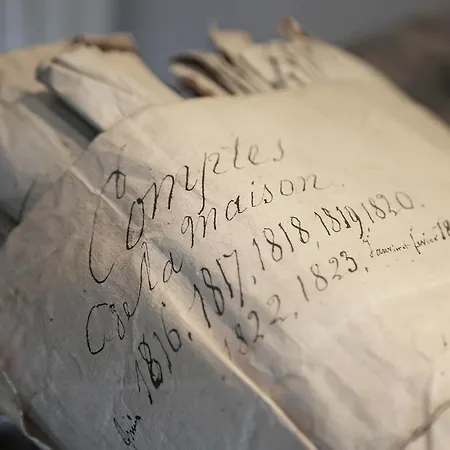 Comptes
de la maison.
1816, 1817, 1818, 1819, 1820.
1822, 1823, Janvier février 18